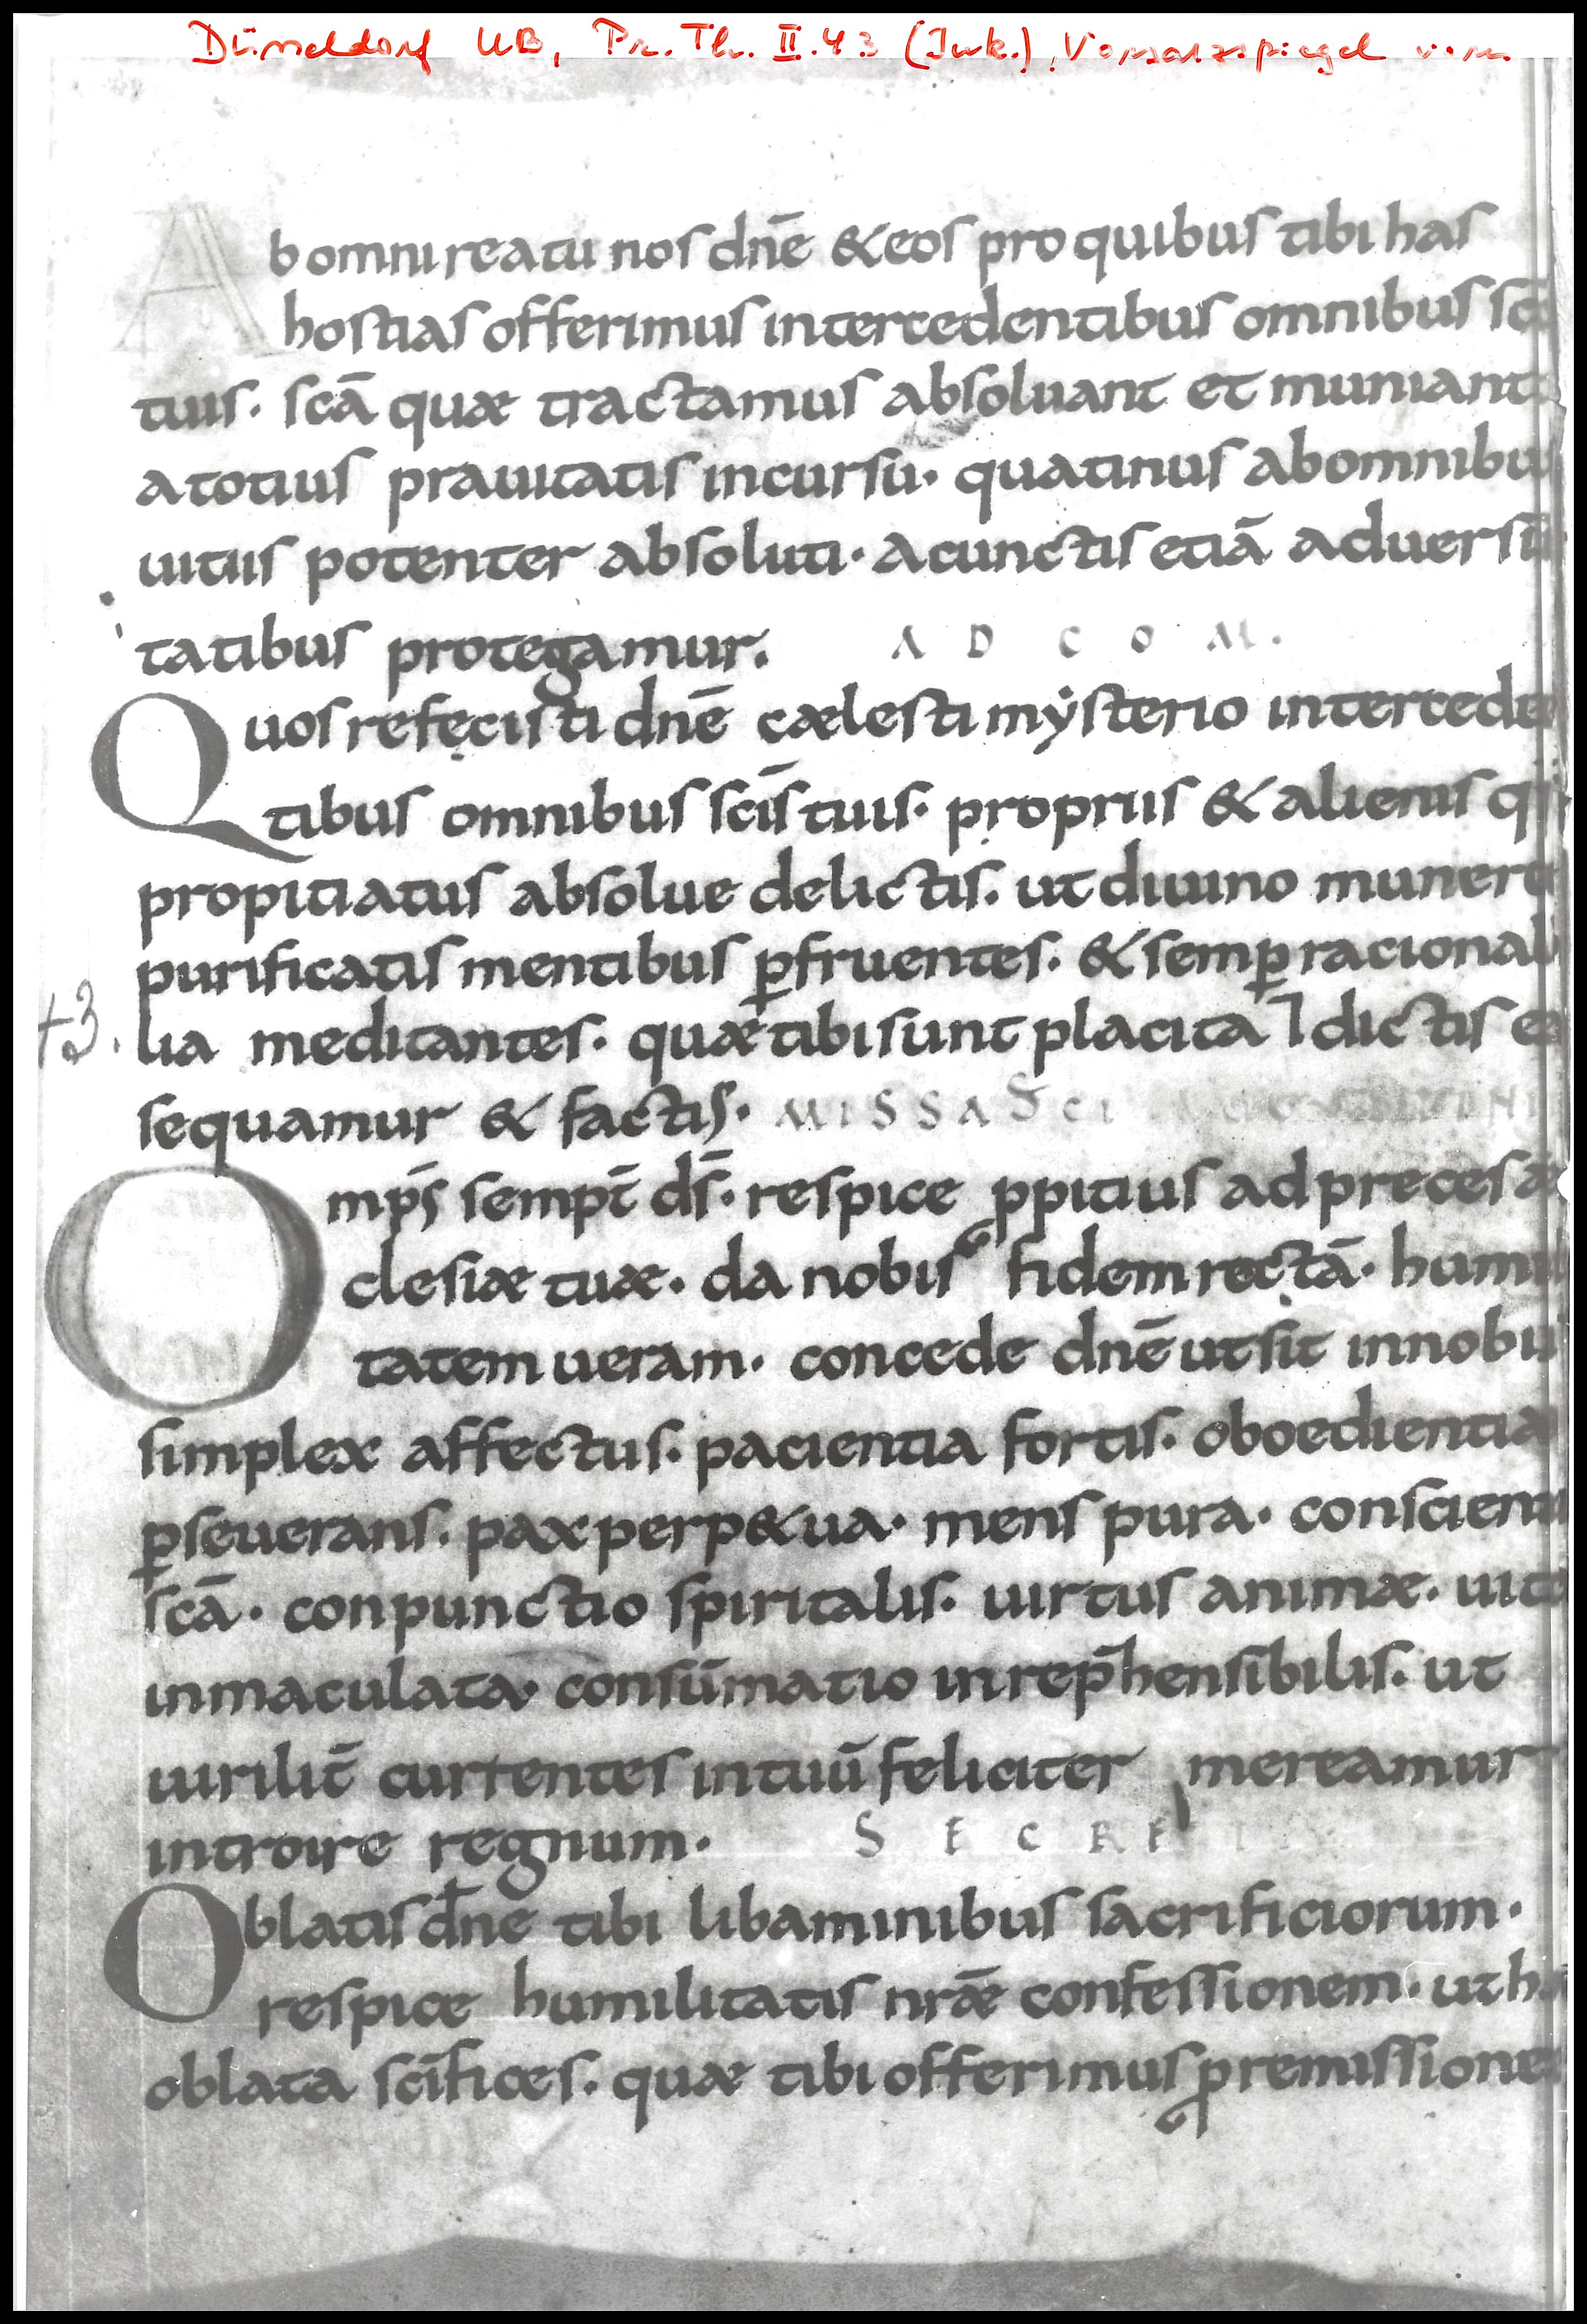 Düsseldorf UB, Pr. Th. II. 43 (Ink.), Vorsatzspiegel vorn
Ab omni reatu nos dnē & eos pro quibus tibi has
hostias offerimus intercedentibus omnibus sc̄
tuis· scā quæ tractamus absoluant et muniant
a totius prauitatis incursu· quatinus ab omnibu
uitiis potenter absoluti· a cunctis etiā aduersi
tatibus protegamur. AD COM.
Quos refecisti dnē cælesti mẏsterio intercede
tibus omnibus scīs tuis· propriis & alienis q
propitiatus absolue delictis· ut diuino munere
purificatis mentibus ꝑfruentes· & semꝑ racionabi
43. lia meditantes· quæ tibi sunt placita ⁊ dictis e
sequamur & factis· MISSA SCI
Omp̄s semp̄t d̄s· respice ꝓpitius ad preces æ
clesiæ tuæ· da nobis fidem rectā· humi
tatem ueram· concede dnē ut sit in nobis
simplex affectus· pacientia fortis· oboedientia
ꝑseuerans· pax perp&ua· mens pura· conscienti
scā· conpunctio spiritalis· uirtus animæ· uit
inmaculata· consūmatio inrep̄hensibilis· ut
uirilit̄ currentes in tuū feliciter mereamur
introire regnum· SECRET
Oblatis dn̄e tibi libaminibus sacrificiorum·
respice humilitatis nrāe confessionem· ut h
oblata scīfices· quæ tibi offerimus ꝓ remissione